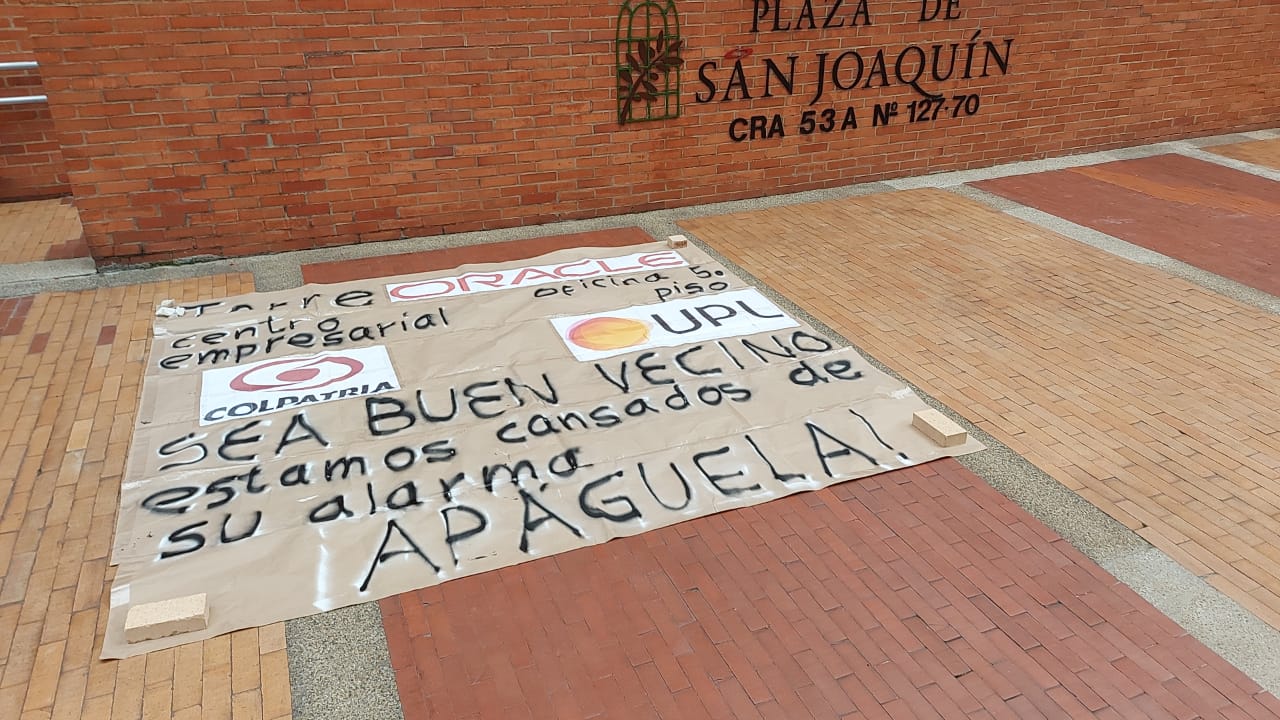 PLAZA DE
SAN JOAQUÍN
CRA 53A Nº 127-70
Torre ORACLE
oficina 5.
piso
centro
empresarial
UPL
COLPATRIA
SEA BUEN VECINO
estamos cansados de
su alarma
¡APÁGUELA!